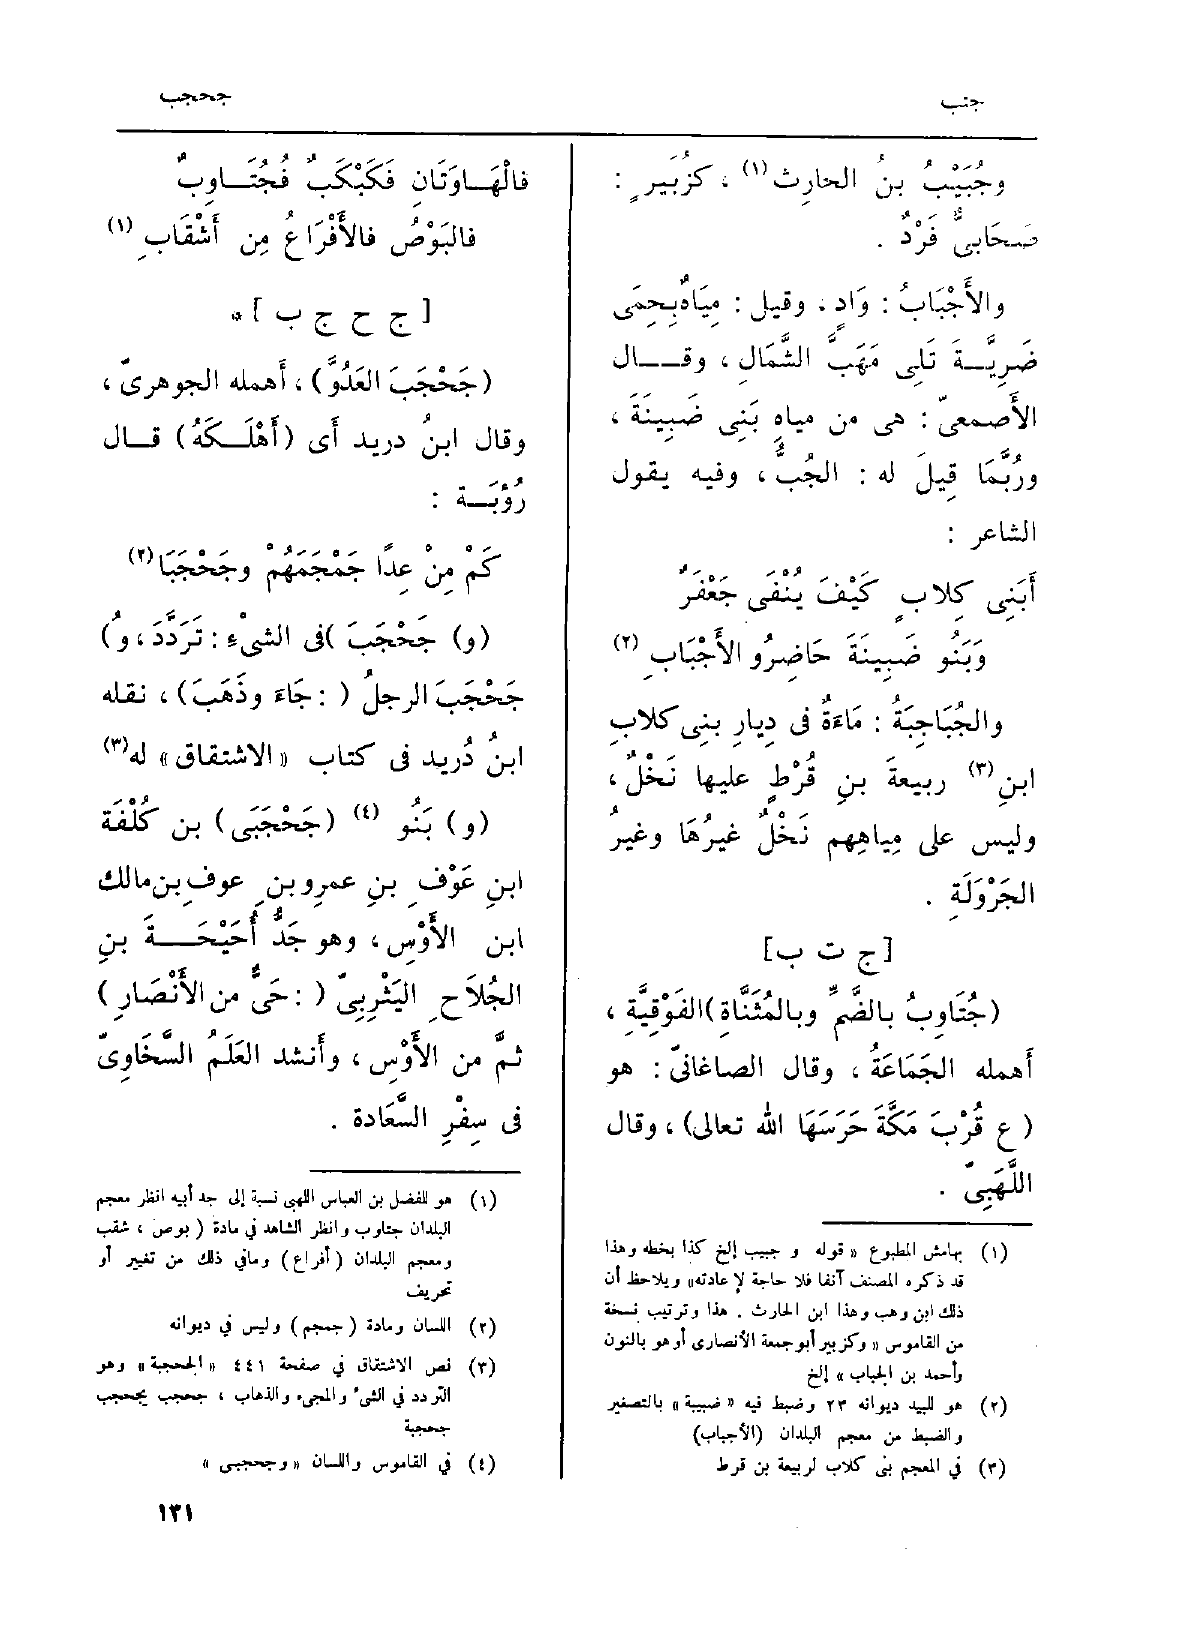 جتب
جحجب
وجُبَيْبُ بنُ الحارِثِ (١) ، كزُبَيرٍ :
صَحَابىٌّ فَرْدٌ .
والأَجْبَابُ : وَادٍ ، وقيل : مِيَاهٌ بِحِمَى
ضَرِيَّـــة تَلِى مَهَبَّ الشَّمَالِ ، وقـــــال
الأَصمعىّ : هى من مياهِ بَنِى ضَبِينَةَ ،
ورُبَّمَا قِيلَ له : الجُبُّ ، وفيه يقول
الشاعر :
أَبَنِى كِلابٍ كَيْفَ يُنْفَى جَعْفَرٌ
وَبَنُو ضَبِينَةَ حَاضِرُو الأَجْبَابِ (٢)
والجُبَاجِبَةُ : مَاءَةٌ فى دِيارِ بنى كلابِ
ابنِ (٣) ربيعةَ بنِ قُرْطٍ عليها نَخْلٌ ،
وليس على مِياهِهم نَخْلٌ غيرُهَا وغيرُ
الجَرْوَلَةِ .
[ج ت ب]
(جُتَاوِبُ بالضَّمِّ وبالمُثَنَّاةِ )الفَوْقِيَّةِ ،
أَهمله الجَمَاعَةُ ، وقال الصاغانىّ : هو
( ع قُرْبَ مَكَّةَ حَرَسَهَا الله تعالى) ، وقال
اللَّهَبِىّ .
(١) بهامش المطبوع « قوله و جبيب إلخ كذا بخطه وهذا
قد ذكره المصنف آنفا فلا حاجة لإعادته» ويلاحظ أن
ذلك ابن وهب وهذا ابن الحارث . هذا وترتيب نسخة
من القاموس « وكزبير أبو جمعة الأنصارى أو هو بالنون
وأحمد بن الجباب » إلخ
(٢) هو للبيد ديوانه ٢٣ وضبط فيه « ضبيبة » بالتصغير
والضبط من معجم البلدان (الأجباب)
(٣) في المعجم بنى كلاب لربيعة بن قرط
فالْهَـــاوَتَانِ فَكَبْكَبٌ فَجُتَـــاوِبٌ
فالبَوْصُ فالأَفْرَاعُ مِن أَشْقَابِ (١)
[ ج ح ج ب ] *
(جَحْجَبَ العَدُوَّ) ، أَهمله الجوهرىّ ،
وقال ابنُ دريد أَى (أَهْلَـــكَهُ) قـــال
رُؤْبَـــة :
كَمْ مِنْ عِدًا جَمْجَمَهُمْ وجَحْجَبَا (٢)
(و) جَحْجَبَ )فى الشىْءِ : تَرَدَّدَ ، وَ)
جَحْجَبَ الرجلُ ( : جَاءَ وذَهَبَ) ، نقله
ابنُ دُريد فى كتاب « الاشتقاق » له (٣)
(و) بَنُو (٤) (جَحْجَبَى) بن كُلْفَةَ
ابنِ عَوْفِ بنِ عمرِو بنِ عوفِ بن مالك
ابن الأَوْسِ ، وهو جَدُّ أُحَيْحَـــةَ بنِ
الجُلَاحِ اليَثْرِبِىّ ( : حَىٌّ من الأَنْصَارِ )
ثمَّ من الأَوْسِ ، وأَنشد العَلَمُ السَّخَاوِىّ
فى سِفْرِ السَّعَادة .
(١) هو للفضل بن العباس اللهبى نسبة إلى جد أبيه انظر معجم
البلدان جتاوب وانظر الشاهد في مادة ( بوص ، شقب
ومعجم البلدان (أفراع) ومافي ذلك من تغيير أو
تحريف
(٢) اللسان ومادة (جمجم) وليس في ديوانه
(٣) نص الاشتقاق في صفحة ٤٤١ « الجحجبة » وهو
التردد في الشىء والمجىء والذهاب ، جحجب يجحجب
جحجبة
(٤) في القاموس واللسان « وجحجبى »
١٣١